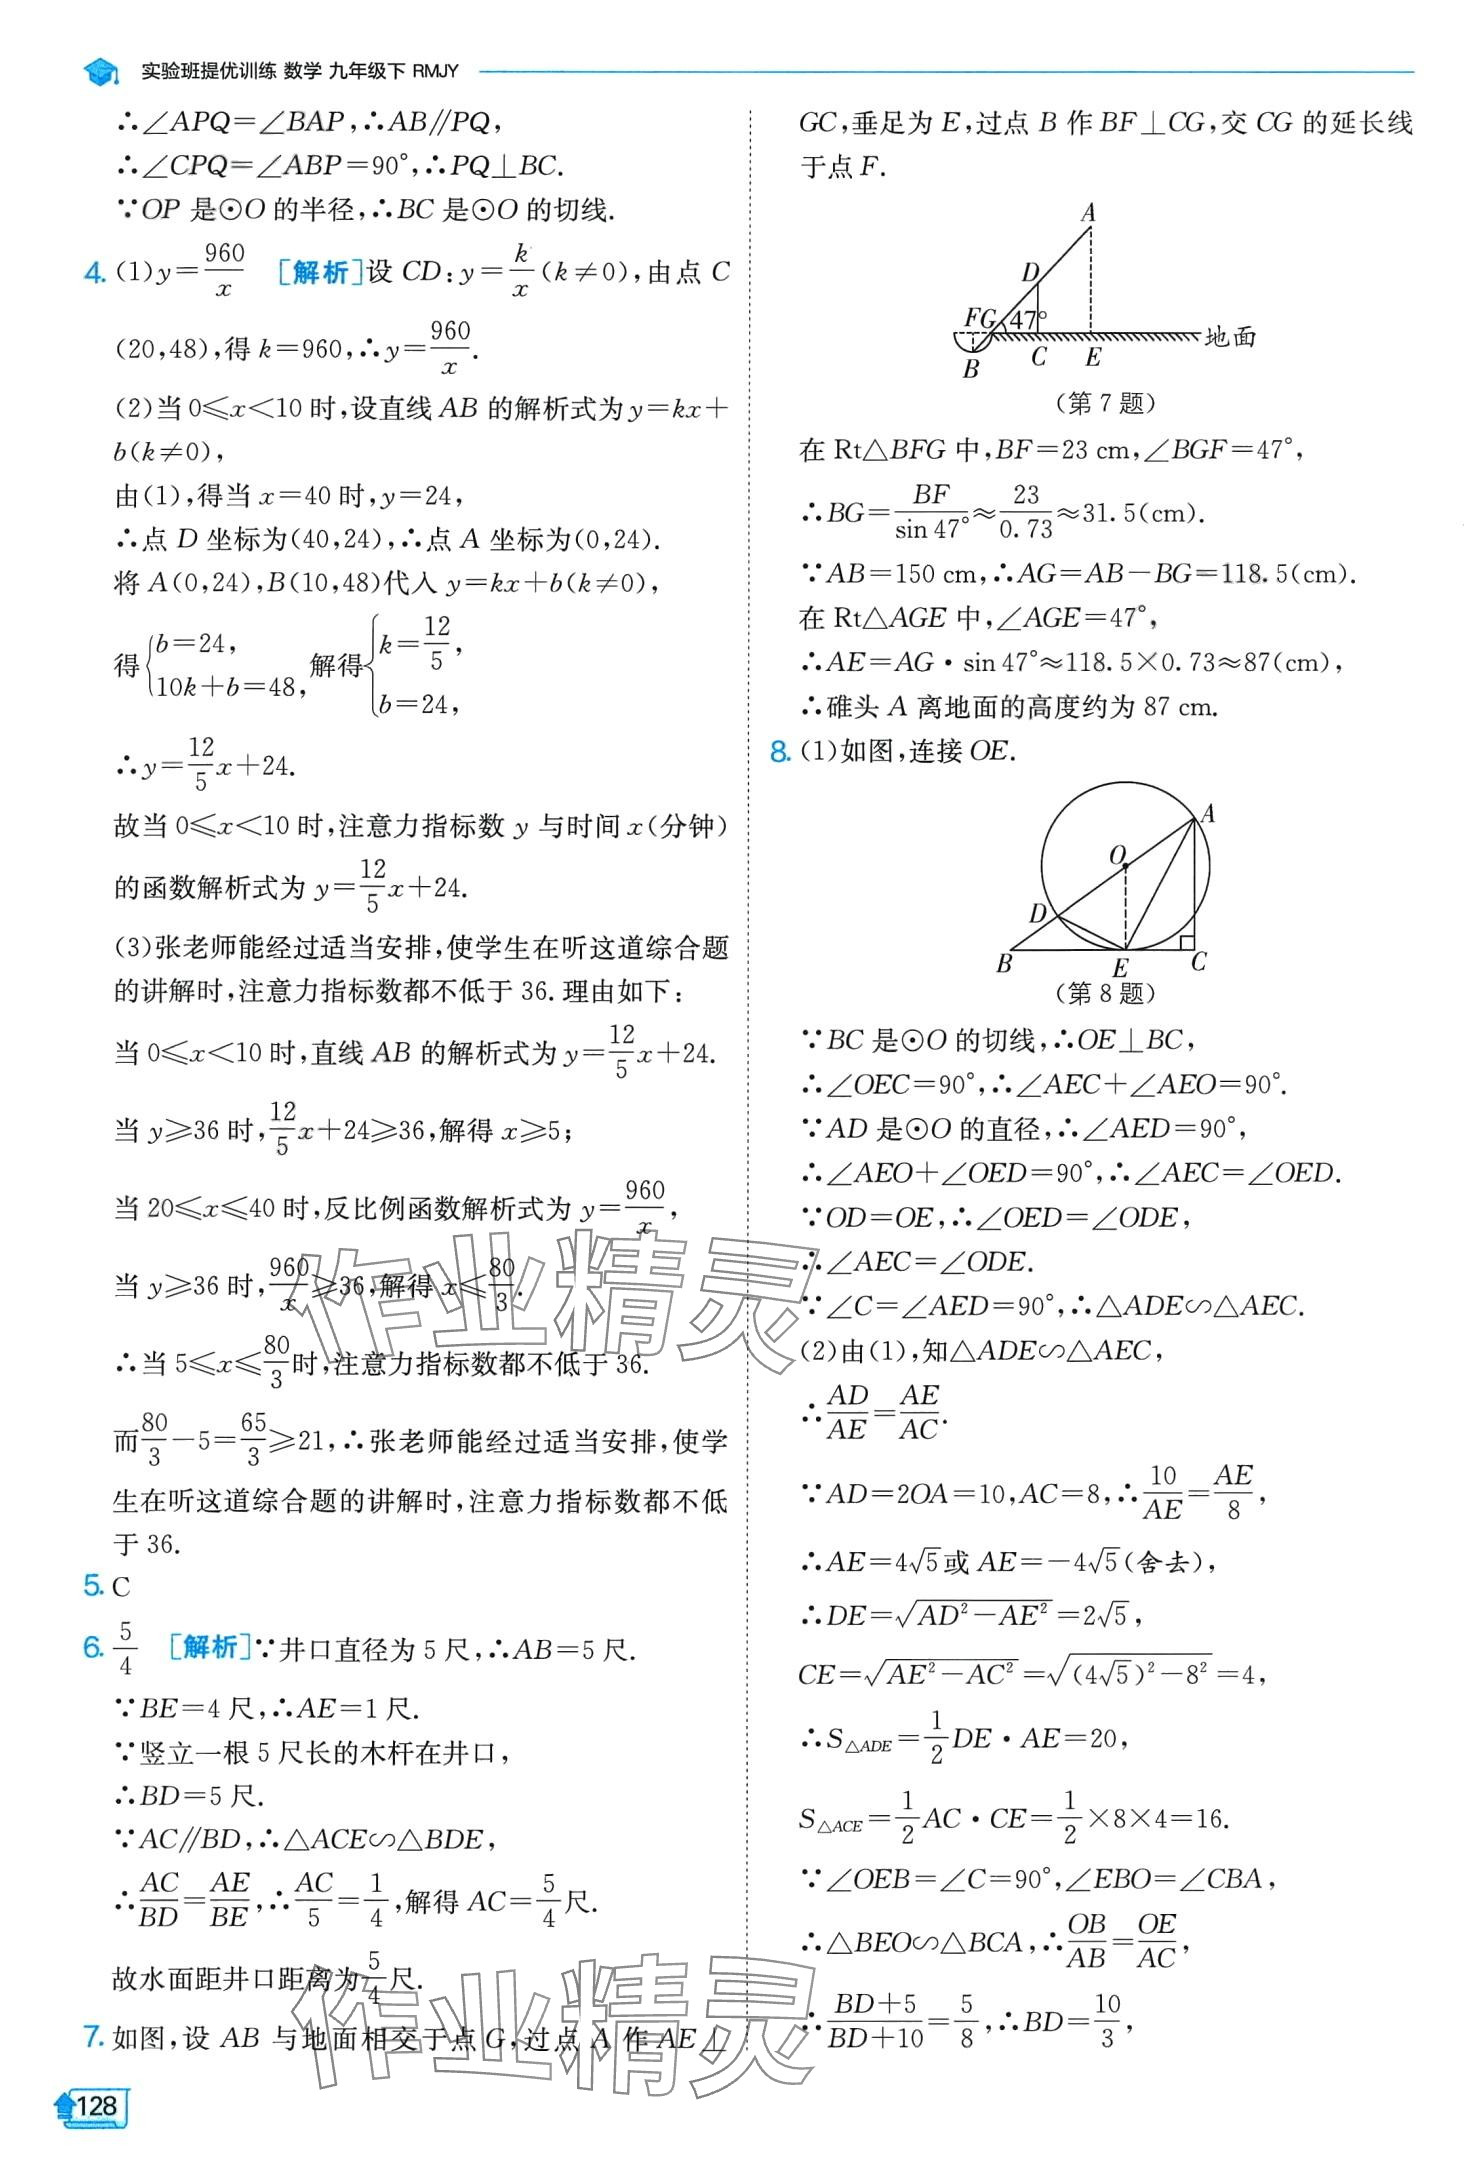 实验班提优训练 数学 九年级下 RMJY
∴∠APQ=∠BAP,∴AB∥PQ,
∴∠CPQ=∠ABP=90°,∴PQ⊥BC.
∵OP 是⊙O 的半径,∴BC 是⊙O 的切线.
4. (1)y=960/x [解析]设 CD:y=k/x(k≠0),由点 C
(20,48),得 k=960,∴y=960/x.
(2)当 0≤x<10 时,设直线 AB 的解析式为 y=kx+
b(k≠0),
由(1),得当 x=40 时,y=24,
∴点 D 坐标为(40,24),∴点 A 坐标为(0,24).
将 A(0,24),B(10,48)代入 y=kx+b(k≠0),
得{b=24, 10k+b=48, 解得{k=12/5, b=24,
∴y=12/5x+24.
故当 0≤x<10 时,注意力指标数 y 与时间 x(分钟)
的函数解析式为 y=12/5x+24.
(3)张老师能经过适当安排,使学生在听这道综合题
的讲解时,注意力指标数都不低于 36.理由如下:
当 0≤x<10 时,直线 AB 的解析式为 y=12/5x+24.
当 y≥36 时,12/5x+24≥36,解得 x≥5;
当 20≤x≤40 时,反比例函数解析式为 y=960/x,
当 y≥36 时,960/x≥36,解得 x≤80/3.
∴当 5≤x≤80/3时,注意力指标数都不低于 36.
而80/3-5=65/3≥21,∴张老师能经过适当安排,使学
生在听这道综合题的讲解时,注意力指标数都不低
于 36.
5. C
6. 5/4 [解析]∵井口直径为 5 尺,∴AB=5 尺.
∵BE=4 尺,∴AE=1 尺.
∵竖立一根 5 尺长的木杆在井口,
∴BD=5 尺.
∵AC∥BD,∴△ACE∽△BDE,
∴AC/BD=AE/BE,∴AC/5=1/4,解得 AC=5/4尺.
故水面距井口距离为5/4尺.
7. 如图,设 AB 与地面相交于点 G,过点 A 作 AE⊥
128
GC,垂足为 E,过点 B 作 BF⊥CG,交 CG 的延长线
于点 F.
A
D
FG 47° 地面
B C E
(第 7 题)
在 Rt△BFG 中,BF=23 cm,∠BGF=47°,
∴BG=BF/sin 47°≈23/0.73≈31.5(cm).
∵AB=150 cm,∴AG=AB-BG=118.5(cm).
在 Rt△AGE 中,∠AGE=47°,
∴AE=AG·sin 47°≈118.5×0.73≈87(cm),
∴碓头 A 离地面的高度约为 87 cm.
8. (1)如图,连接 OE.
A
O
D
B E C
(第 8 题)
∵BC 是⊙O 的切线,∴OE⊥BC,
∴∠OEC=90°,∴∠AEC+∠AEO=90°.
∵AD 是⊙O 的直径,∴∠AED=90°,
∴∠AEO+∠OED=90°,∴∠AEC=∠OED.
∵OD=OE,∴∠OED=∠ODE,
∴∠AEC=∠ODE.
∵∠C=∠AED=90°,∴△ADE∽△AEC.
(2)由(1),知△ADE∽△AEC,
∴AD/AE=AE/AC.
∵AD=2OA=10,AC=8,∴10/AE=AE/8,
∴AE=4√5或 AE=-4√5(舍去),
∴DE=√(AD²-AE²)=2√5,
CE=√(AE²-AC²)=√((4√5)²-8²)=4,
∴S△ADE=1/2DE·AE=20,
S△ACE=1/2AC·CE=1/2×8×4=16.
∵∠OEB=∠C=90°,∠EBO=∠CBA,
∴△BEO∽△BCA,∴OB/AB=OE/AC,
∴(BD+5)/(BD+10)=5/8,∴BD=10/3,
作业精灵
作业精灵